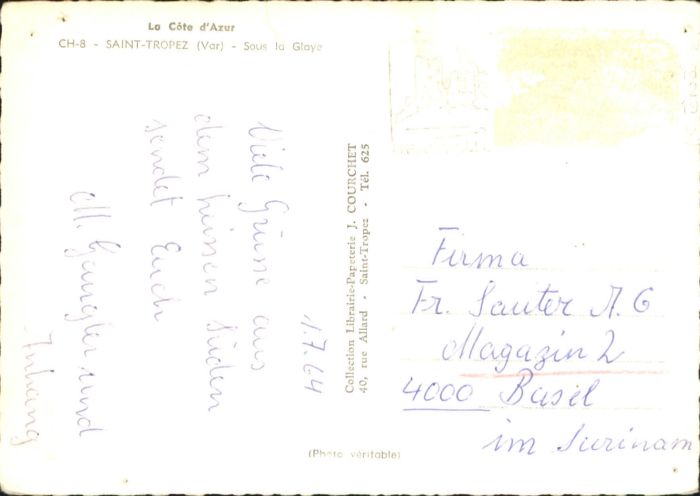 La Côte d'Azur
CH-8 - SAINT-TROPEZ (Var) - Sous la Glaye
1.7.64
Viele Grüsse aus
dem heissen Süden
sendet Euch
M. Gängler und
Anhang
Collection Librairie-Papeterie J. COURCHET
40, rue Allard - Saint-Tropez - Tél. 625
Firma
Fr. Sauter A. G
Magazin 2
4000 Basel
im Surinam
(Photo véritable)